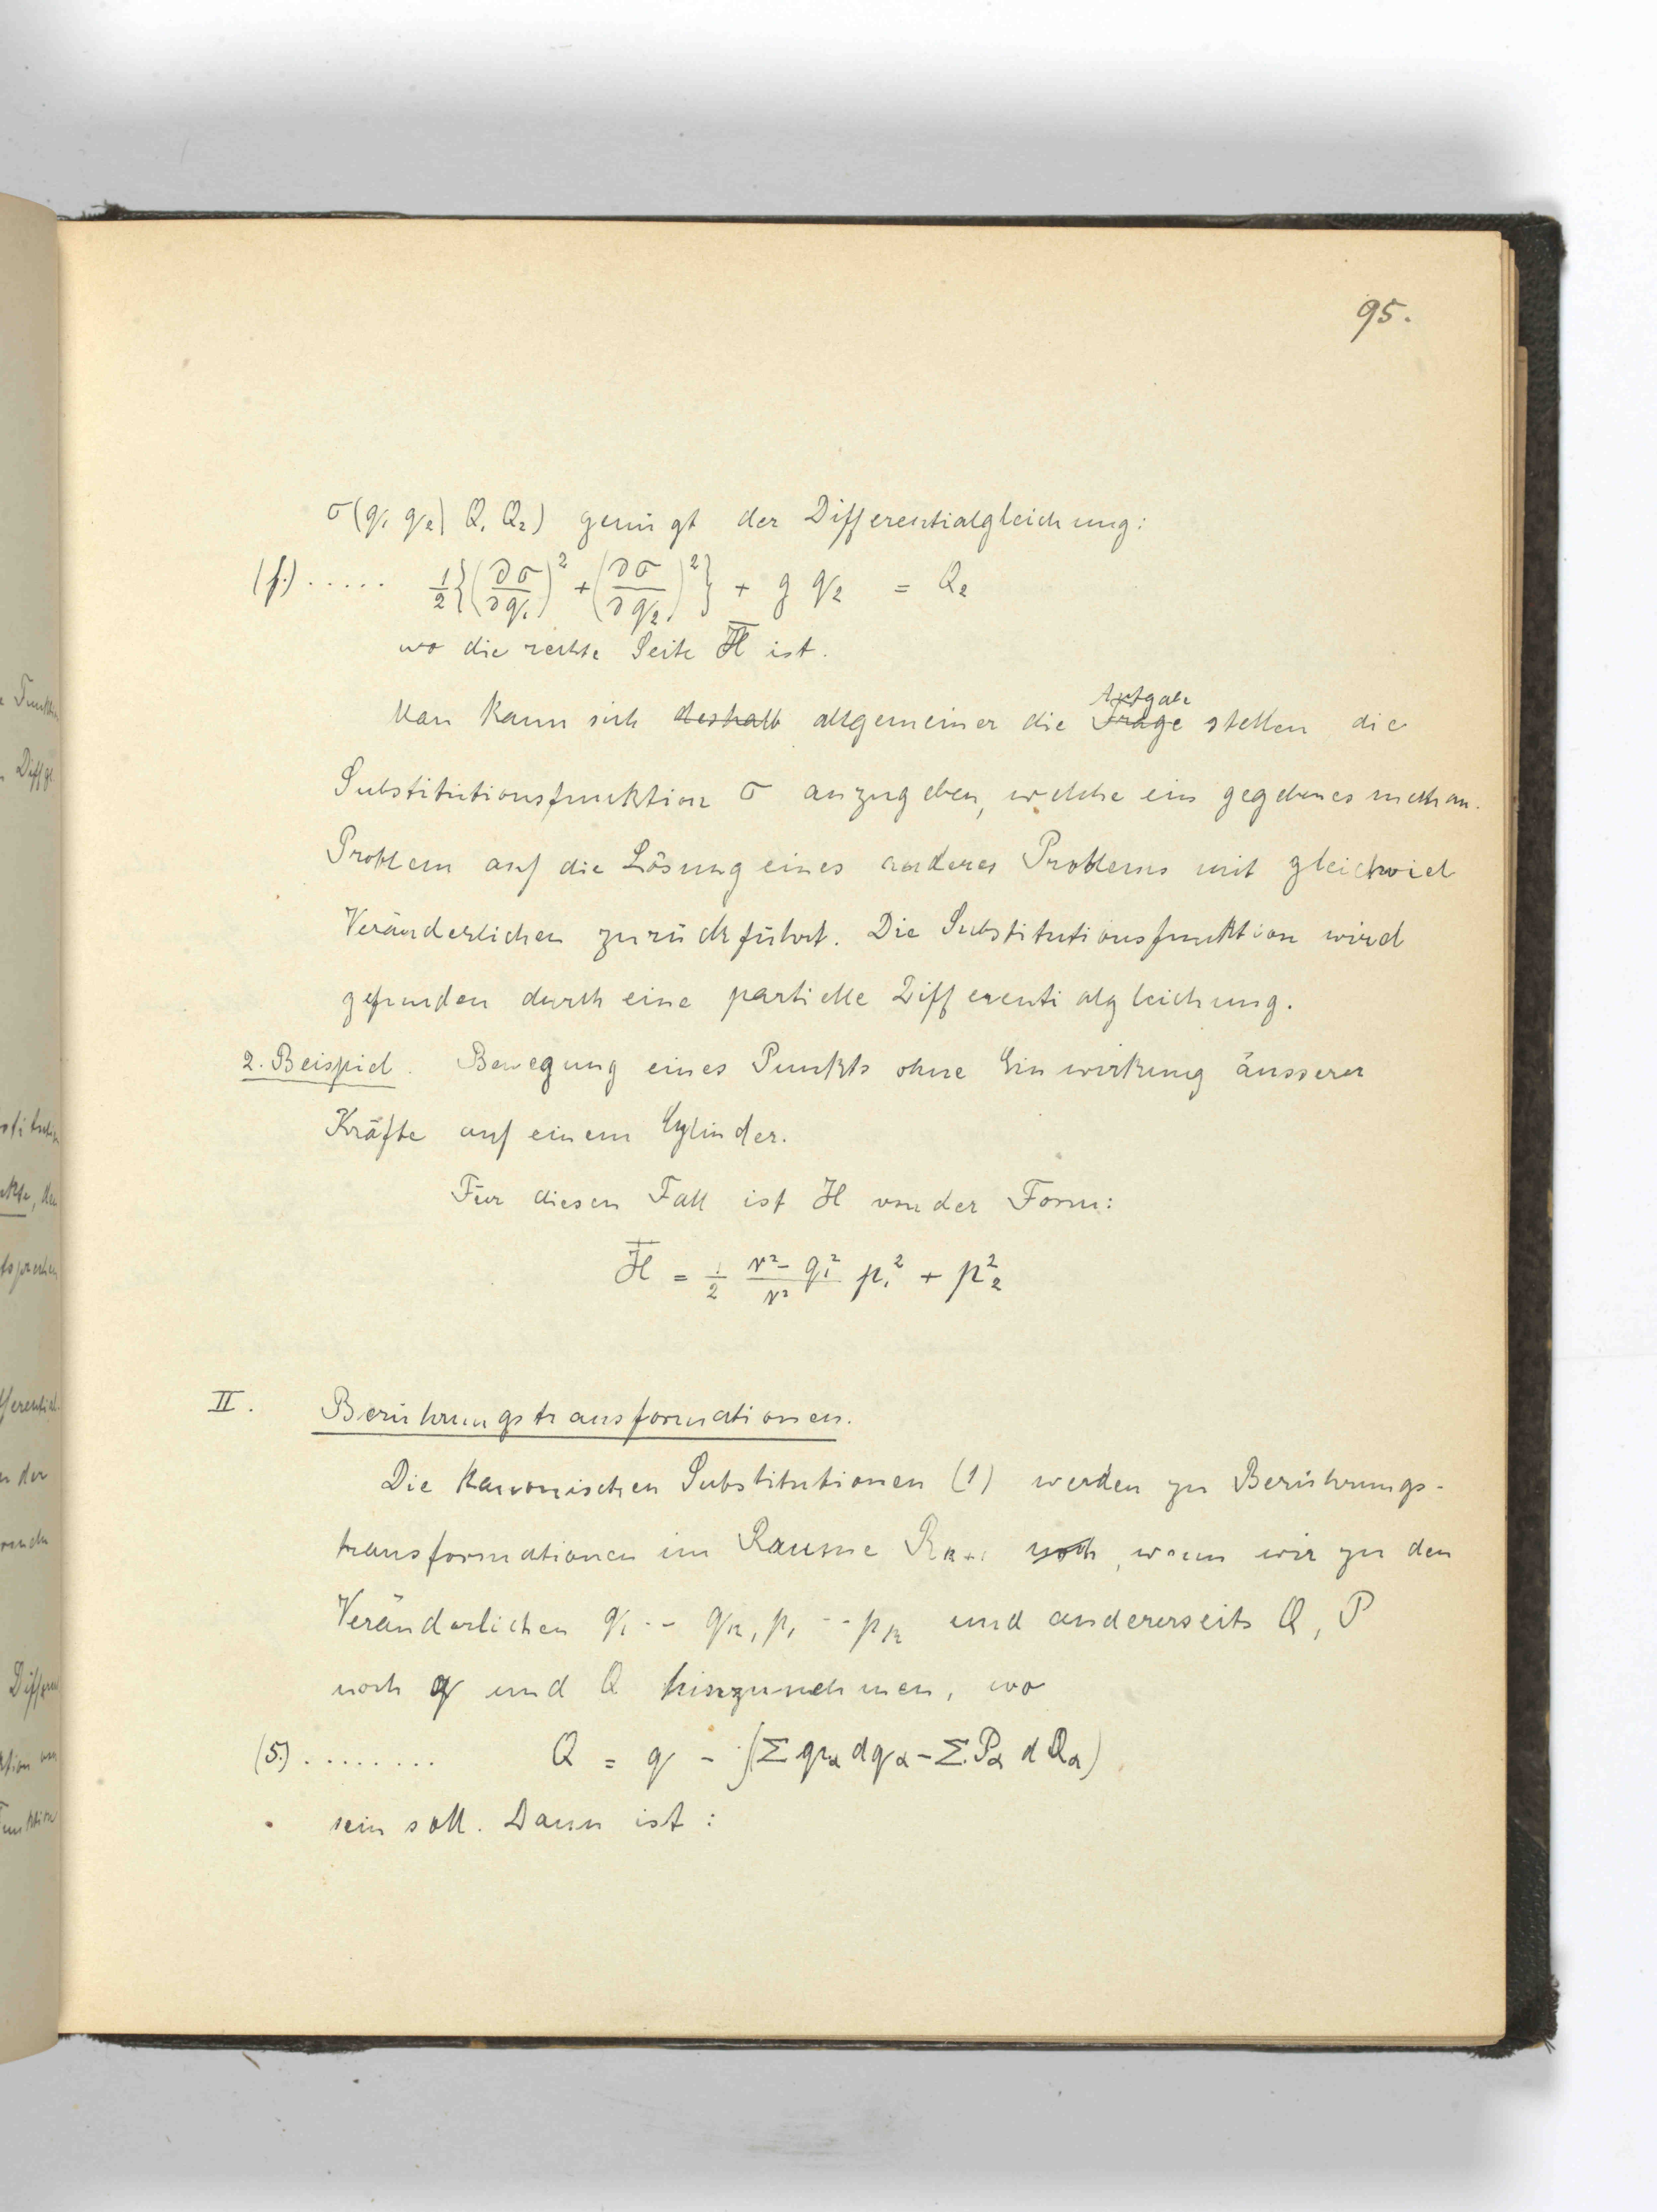 95.
σ(q₁ q₂| Q₁ Q₂) genügt der Differentialgleichung:
(f.) ..... ½{(∂σ/∂q₁)² + (∂σ/∂q₂)²} + g q₂ = Q₂
wo die rechte Seite H̅ ist.
Man kann sich deshalb allgemeiner die Frage Aufgabe stellen die
Substitutionsfunktion σ anzugeben, welche ein gegebenes mechan.
Problem auf die Lösung eines anderes Problems mit gleichviel
Veränderlichen zurückführt. Die Substitutionsfunktion wird
gefunden durch eine partielle Differentialgleichung.
2. Beispiel. Bewegung eines Punkts ohne Einwirkung äusserer
Kräfte auf einem Cylinder.
Für diesen Fall ist H von der Form:
H̅ = ½ (r² - q₁²)/r² p₁² + p₂²
II. Berührungstransformationen.
Die kanonischen Substitutionen (1) werden zu Berührungs-
transformationen im Raume Rₖ₊₁ noch, wenn wir zu den
Veränderlichen q₁ -- qₖ, p₁ -- pₖ und andererseits Q, P
noch q und Q hinzunehmen, wo
(5.) ........ Q = q - ∫(Σ pα dqα - Σ Pα dQα)
sein soll. Dann ist :
Funktion
Diffgl.